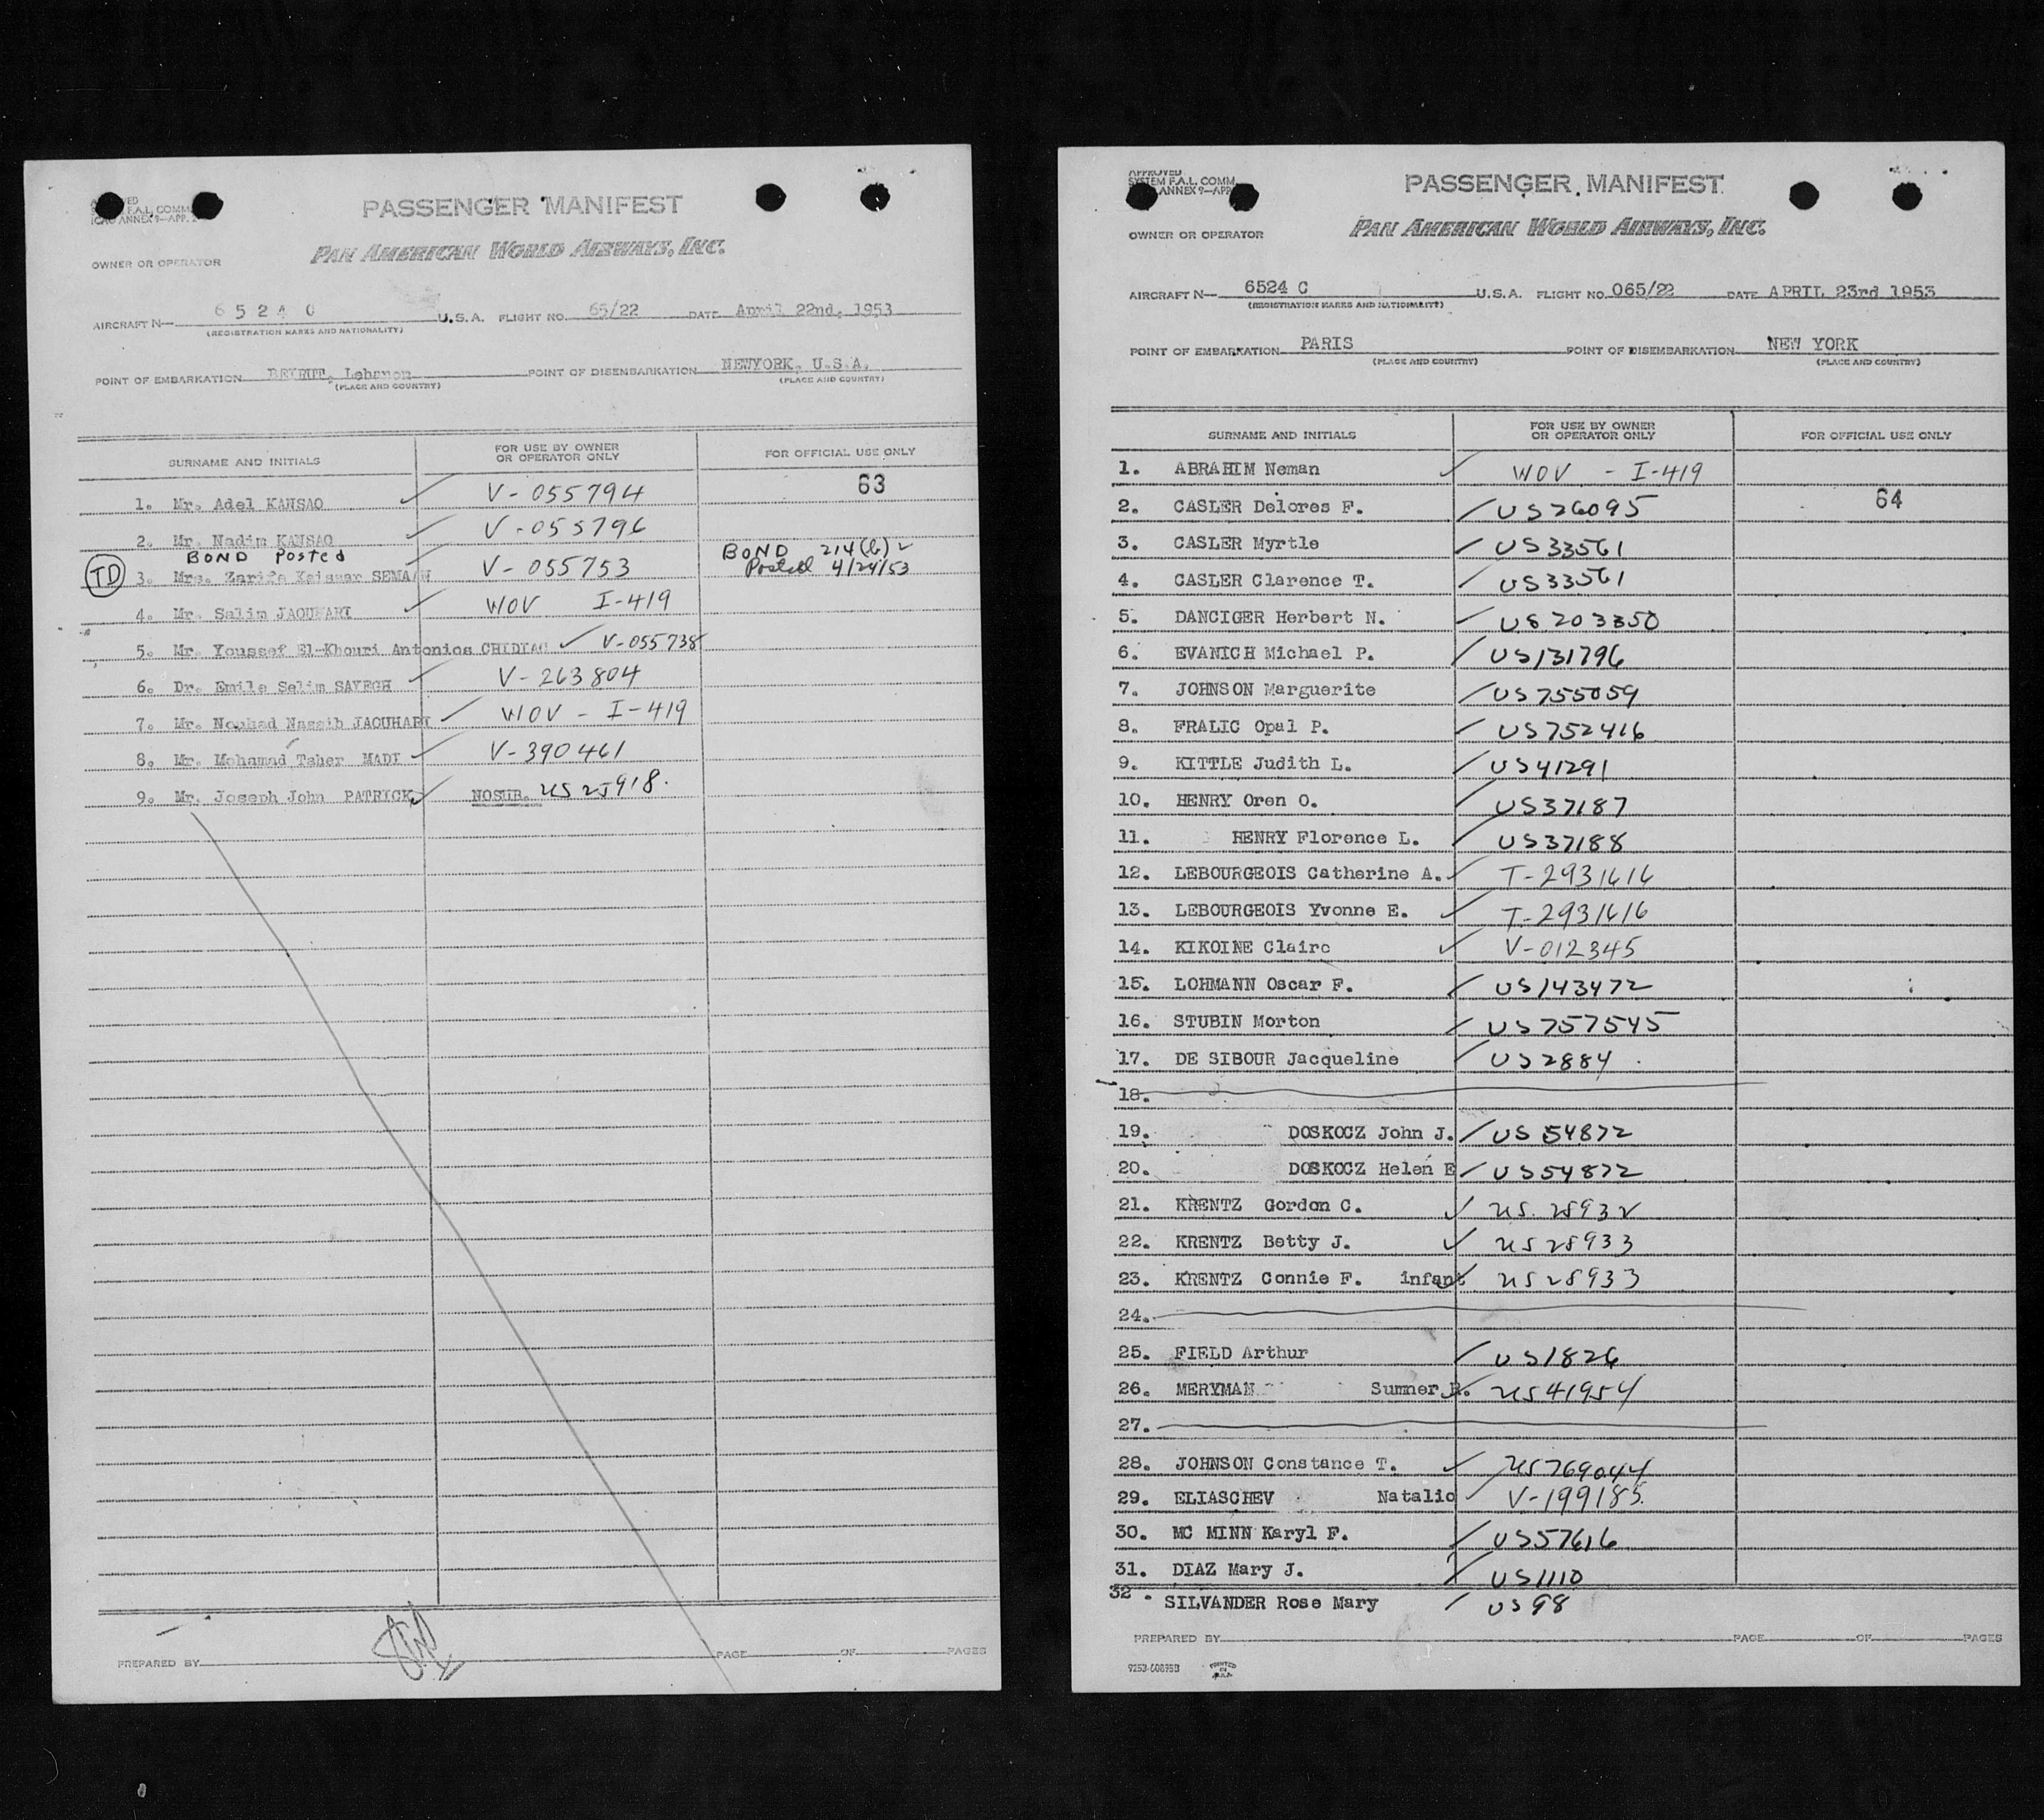 PASSENGER MANIFEST
PAN AMERICAN WORLD AIRWAYS, INC.
OWNER OR OPERATOR
AIRCRAFT N— 6524 C U.S.A. FLIGHT NO. 65/22 DATE April 22nd, 1953
(REGISTRATION MARKS AND NATIONALITY)
POINT OF EMBARKATION BEYRUT, Lebanon POINT OF DISEMBARKATION NEWYORK, U.S.A.
(PLACE AND COUNTRY) (PLACE AND COUNTRY)
SURNAME AND INITIALS FOR USE BY OWNER OR OPERATOR ONLY FOR OFFICIAL USE ONLY
63
1. Mr. Adel KANSAO ✓ V-055794
2. Mr. Nadim KANSAO ✓ V-055796
BOND Posted BOND 214(b) ✓
TD 3. Mrs. Zarifa Kaissar SEMAAN V-055753 Posted 4/24/53
4. Mr. Salim JAOUHARI ✓ WOV I-419
5. Mr. Youssef El-Khouri Antonios CHIDIAC ✓ V-055738
6. Dr. Emile Selim SAYEGH ✓ V-263804
7. Mr. Nouhad Nassib JAOUHARI ✓ WOV - I-419
8. Mr. Mohamad Taher MADI ✓ V-390461
9. Mr. Joseph John PATRICK ✓ NOSUB. US 25918.
PREPARED BY PAGE OF PAGES
APPROVED
SYSTEM F.A.L. COMM.
ANNEX 9—APP.
PASSENGER MANIFEST
PAN AMERICAN WORLD AIRWAYS, INC.
OWNER OR OPERATOR
AIRCRAFT N— 6524 C U.S.A. FLIGHT NO. 065/22 DATE APRIL 23rd 1953
(REGISTRATION MARKS AND NATIONALITY)
POINT OF EMBARKATION PARIS POINT OF DISEMBARKATION NEW YORK
(PLACE AND COUNTRY) (PLACE AND COUNTRY)
SURNAME AND INITIALS FOR USE BY OWNER OR OPERATOR ONLY FOR OFFICIAL USE ONLY
1. ABRAHIM Neman ✓ WOV - I-419
2. CASLER Delores F. ✓ US26095 64
3. CASLER Myrtle ✓ US33561
4. CASLER Clarence T. ✓ US33561
5. DANCIGER Herbert N. ✓ US203350
6. EVANICH Michael P. ✓ US131796
7. JOHNSON Marguerite ✓ US755059
8. FRALIC Opal P. ✓ US752416
9. KITTLE Judith L. ✓ US41291
10. HENRY Oren O. ✓ US37187
11. HENRY Florence L. ✓ US37188
12. LEBOURGEOIS Catherine A. ✓ T-2931616
13. LEBOURGEOIS Yvonne E. ✓ T-2931616
14. KIKOINE Claire ✓ V-012345
15. LOHMANN Oscar F. ✓ US143472
16. STUBIN Morton ✓ US757545
17. DE SIBOUR Jacqueline ✓ US2884
18.
19. DOSKOCZ John J. ✓ US54872
20. DOSKOCZ Helen E ✓ US54872
21. KRENTZ Gordon C. ✓ US.25932
22. KRENTZ Betty J. ✓ US25933
23. KRENTZ Connie F. infant ✓ US25933
24.
25. FIELD Arthur ✓ US1826
26. MERYMAN Sumner R. ✓ US41954
27.
28. JOHNSON Constance T. ✓ US769044
29. ELIASCHEV Natalio ✓ V-199185.
30. MC MINN Karyl F. ✓ US57616
31. DIAZ Mary J. ✓ US1110
32. SILVANDER Rose Mary ✓ US98
PREPARED BY PAGE OF PAGES
9253-608950 PRINTED IN U.S.A.